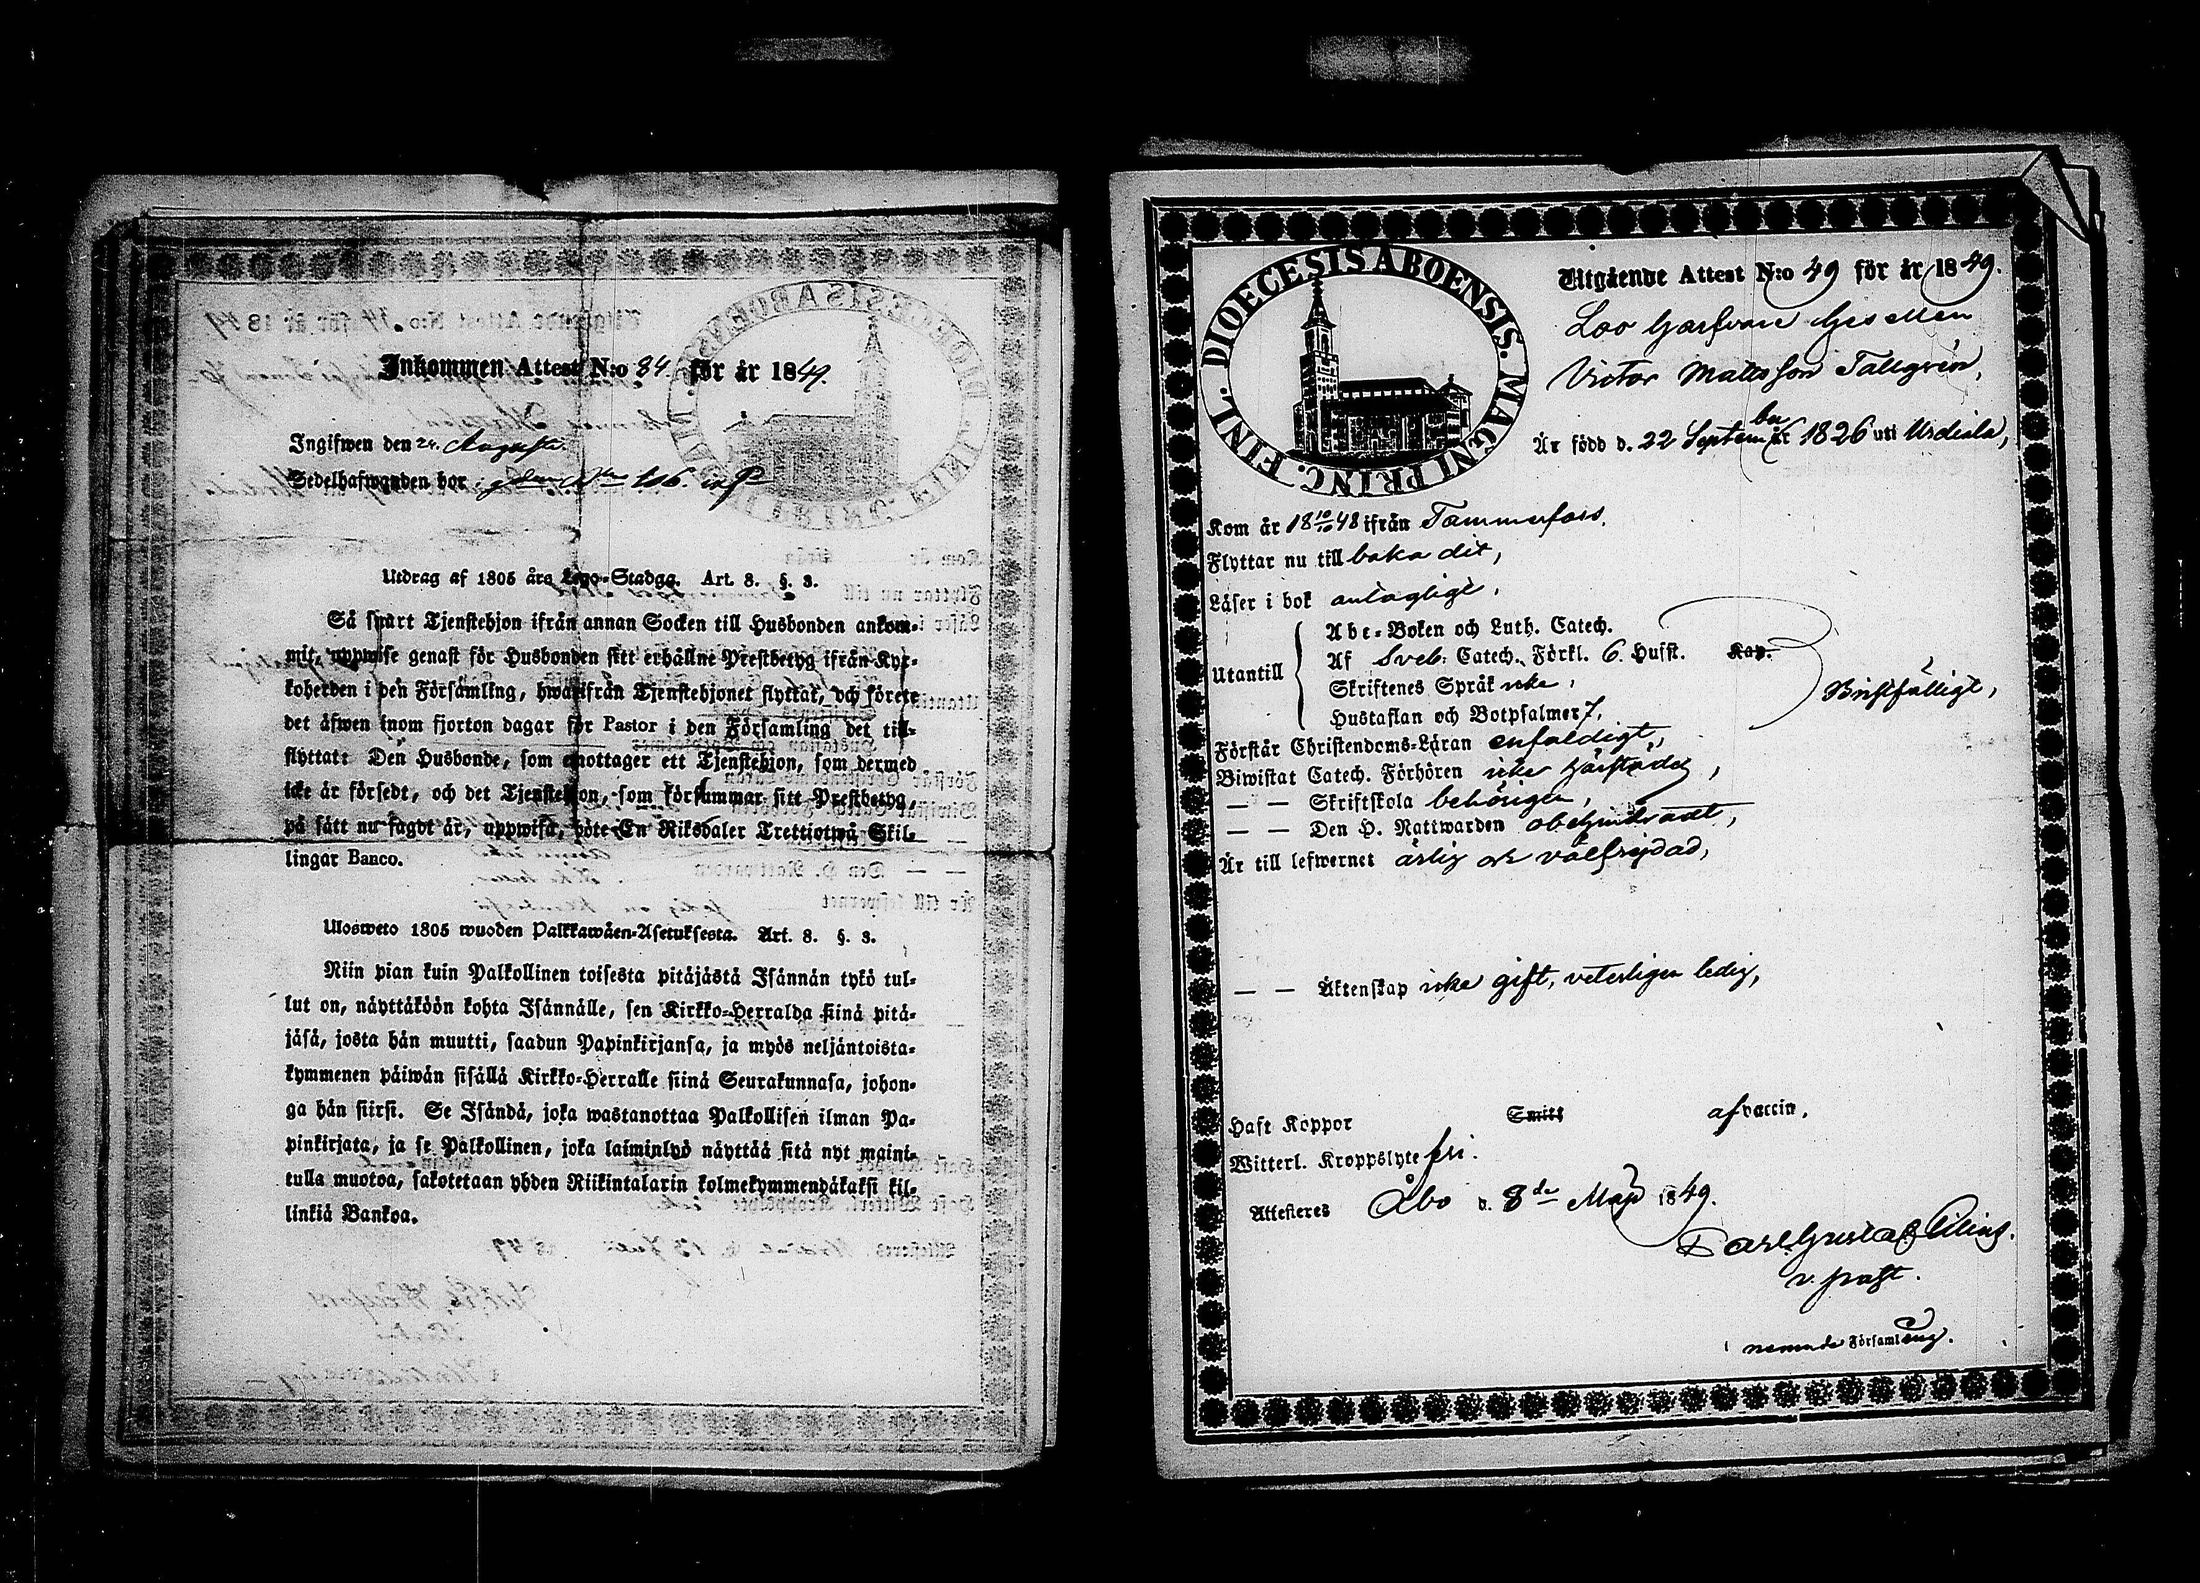 Inkommen Attest N:o 84. för år 1849.
Ingifwen den 24. Augusti.
Sedelhafwanden bor 106.
Utdrag af 1805 års Lego-Stadga. Art. 8. §. 3.
Så snart Tjenstehjon ifrån annan Socken till Husbonden ankom-
mit, uppwise genast för Husbonden sitt erhållne Prestbetyg ifrån Kyr-
koherden i den Församling, hwarifrån Tjenstehjonet flyttat, och förete
det äfwen inom fjorton dagar för Pastor i den Församling det till-
flyttat: Den Husbonde, som emottager ett Tjenstehjon, som dermed
icke är försedt, och det Tjenstehjon, som försummar sitt Prestbetyg,
på sätt nu sagdt är, uppwisa, böte En Riksdaler Trettiotwå Skil-
lingar Banco.
Ulosweto 1805 wuoden Palkkawäen-Asetuksesta. Art. 8. §. 3.
Niin pian kuin Palkollinen toisesta pitäjästä Isännän tykö tul-
lut on, näyttäköön kohta Isännälle, sen Kirkko-Herralda siinä pitä-
jäsä, josta hän muutti, saadun Papinkirjansa, ja myös neljäntoista-
kymmenen päiwän sisällä Kirkko-Herralle siinä Seurakunnasa, johon-
ga hän siirsi. Se Isändä, joka wastanottaa Palkollisen ilman Pa-
pinkirjata, ja se Palkollinen, joka laiminlyö näyttää sitä nyt maini-
tulla muotoa, sakotetaan yhden Riikintalarin kolmekymmendäkaksi kil-
linkiä Bankoa.
DIOECESIS ABOENSIS. MAGNI PRINC. FINL.
Utgående Attest N:o 49 för år 1849.
Garfvare Gesällen
Victor Mattsson Tallgrén,
Är född d. 22 September 1826 uti Urdiala,
Kom år 18 10/10 48 ifrån Tammerfors.
Flyttar nu till baka dit,
Läser i bok antagligt,
Utantill
Abc-Boken och Luth. Catech.
Af Sveb: Catech. Förkl. 6. Husst. Kap.
Skriftenes Språk icke,
Hustaflan och Botpsalmer 7,
Bristfälligt,
Förstår Christendoms-Läran enfaldigt,
Biwistat Catech. Förhören icke härstädes,
— — Skriftskola behörigen,
— — Den H. Nattwarden obehindradt,
Är till lefwernet ärlig och välfrejdad,
— — Äktenskap icke gift, veterligen ledig,
Haft Koppor Smitt af vaccin.
Witterl. Kroppslyte fri.
Attesteres Åbo d. 8de Maji 1849.
Carl Gustaf
v. past.
nemnde Församling.